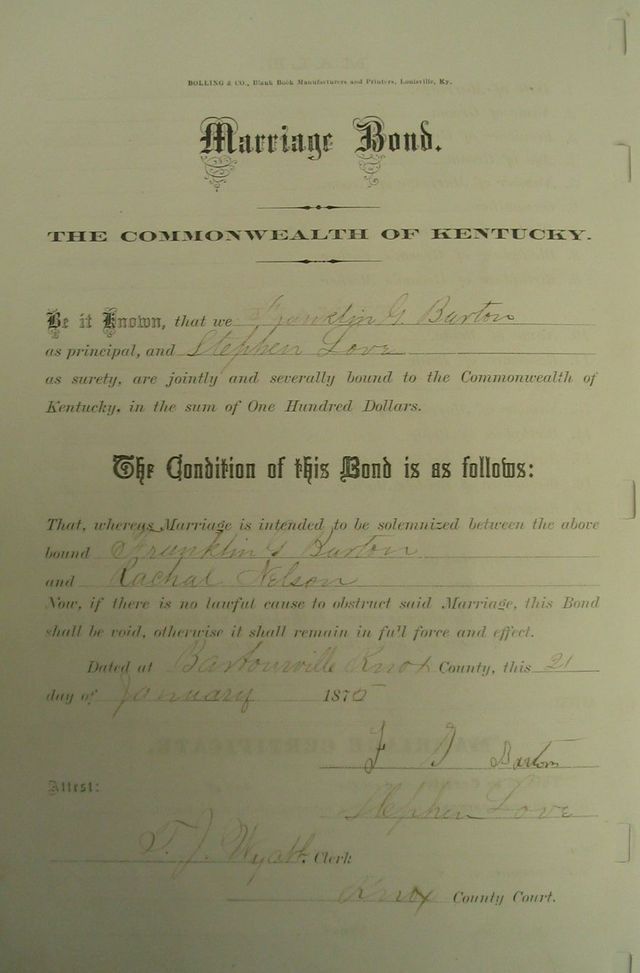 BOLLING & CO., Blank Book Manufacturers and Printers, Louisville, Ky.
Marriage Bond.
THE COMMONWEALTH OF KENTUCKY.
Be it Known, that we Franklin G. Burton
as principal, and Stephen Love
as surety, are jointly and severally bound to the Commonwealth of
Kentucky, in the sum of One Hundred Dollars.
The Condition of this Bond is as follows:
That, whereas Marriage is intended to be solemnized between the above
bound Franklin G Burton
and Rachal Nelson
Now, if there is no lawful cause to obstruct said Marriage, this Bond
shall be void, otherwise it shall remain in full force and effect.
Dated at Bartourville Knox County, this 21
day of January 1875
F G Barton
Attest:
Stephen Love
T. J. Wyatt, Clerk
Knox County Court.